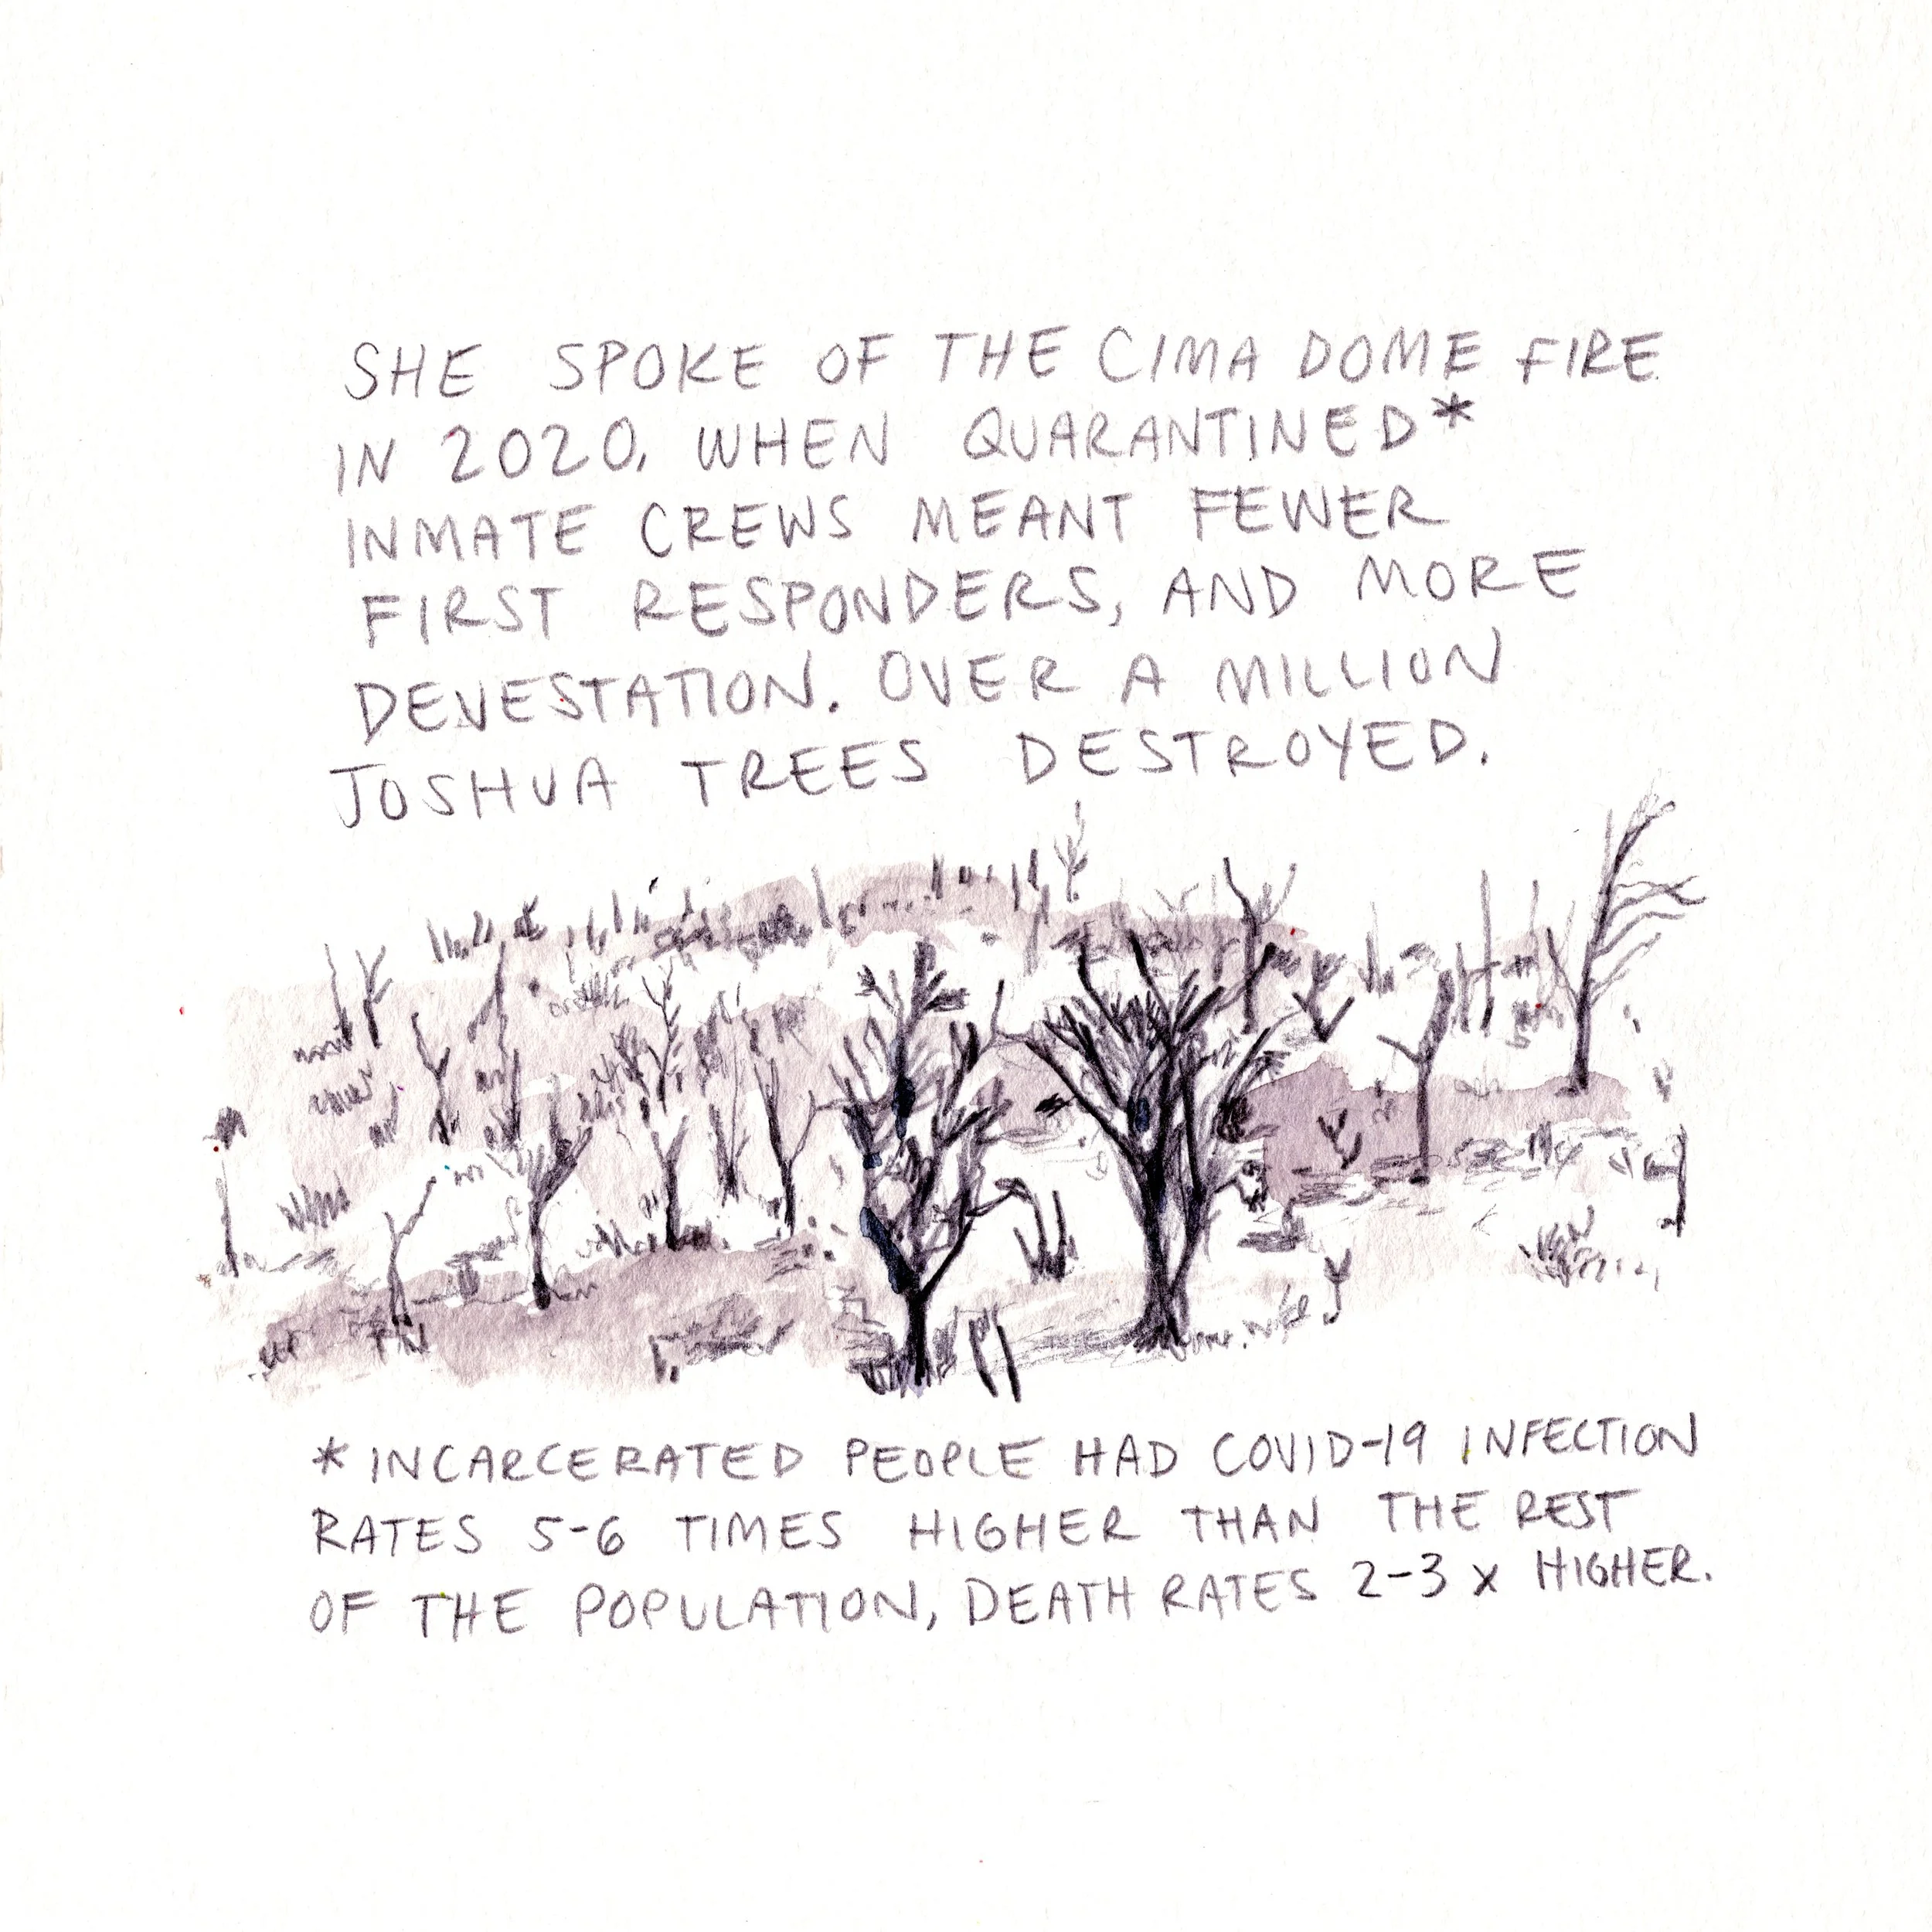 SHE SPOKE OF THE CIMA DOME FIRE
IN 2020, WHEN QUARANTINED*
INMATE CREWS MEANT FEWER
FIRST RESPONDERS, AND MORE
DEVESTATION. OVER A MILLION
JOSHUA TREES DESTROYED.
* INCARCERATED PEOPLE HAD COVID-19 INFECTION
RATES 5-6 TIMES HIGHER THAN THE REST
OF THE POPULATION, DEATH RATES 2-3 X HIGHER.